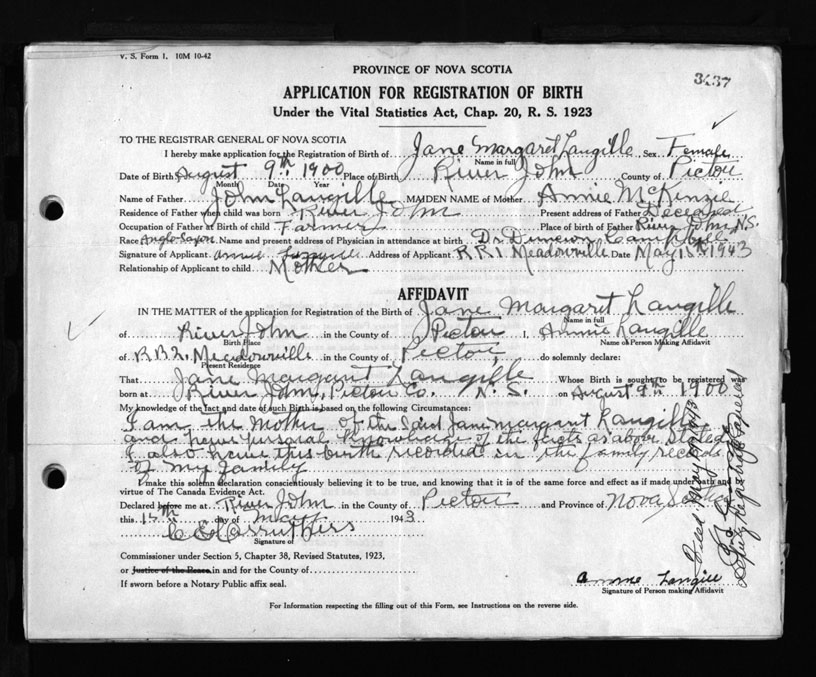 V. S. Form 1. 10M 10-42
3437
PROVINCE OF NOVA SCOTIA
APPLICATION FOR REGISTRATION OF BIRTH
Under the Vital Statistics Act, Chap. 20, R. S. 1923
TO THE REGISTRAR GENERAL OF NOVA SCOTIA
I hereby make application for the Registration of Birth of Jane Margaret Langille Sex Female
Name in full
Date of Birth August 9th 1900 Place of Birth River John County of Pictou
Month Date Year
Name of Father John Langille MAIDEN NAME of Mother Annie McKinzie
Residence of Father when child was born River John Present address of Father Deceased
Occupation of Father at Birth of child Farmer Place of birth of Father River John, N.S.
Race Anglo-Saxon Name and present address of Physician in attendance at birth Dr Duncan Campbell
Signature of Applicant Annie Address of Applicant R R 1 Meadowville Date May 1943
Relationship of Applicant to child Mother
AFFIDAVIT
IN THE MATTER of the application for Registration of the Birth of Jane Margaret Langille
Name in full
of River John in the County of Pictou I, Annie Langille
Birth Place Name of Person Making Affidavit
of Meadowville in the County of Pictou do solemnly declare:
Present Residence
That Jane Margaret Langille Whose Birth is sought to be registered was
born at River John, Pictou Co. N. S. on August 9th 1900
My knowledge of the fact and date of such Birth is based on the following Circumstances:
I am the Mother of the said Jane Margaret Langille
and have personal knowledge of the facts as above stated
I also have this birth recorded in the family records
of my family
I make this solemn declaration conscientiously believing it to be true, and knowing that it is of the same force and effect as if made under oath and
virtue of The Canada Evidence Act.
Declared before me at River John in the County of Pictou and Province of Nova Scotia
this 15th day of May 1943
Signature of
Commissioner under Section 5, Chapter 38, Revised Statutes, 1923,
or Justice of the Peace in and for the County of
If sworn before a Notary Public affix seal.
Annie Langill
Signature of Person making Affidavit
For Information respecting the filling out of this Form, see Instructions on the reverse side.
Filed May 1943
Deputy Registrar General